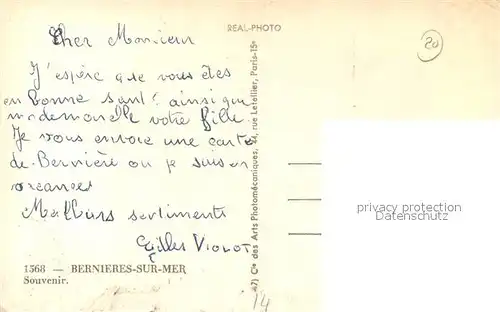 REAL-PHOTO
20
Cher Monsieur
J'espère que vous êtes
en bonne santé ainsi que
mademoiselle votre fille.
Je vous envoie une carte
de Bernière ou je suis en
vacances
Meilleurs sentiments
Gilles Violot
1368 — BERNIERES-SUR-MER
Souvenir.
Cie des Arts Photomécaniques, 44, rue Letellier, Paris-15e
14
privacy protection
Datenschutz